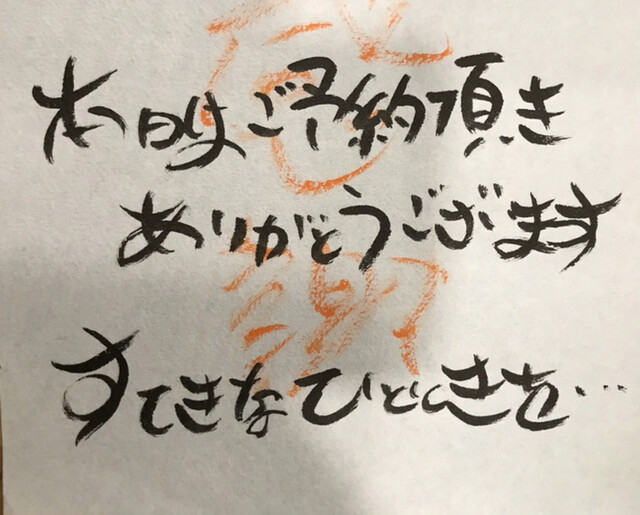 本日はご予約頂き
ありがとうございます
すてきなひとときを…
感謝